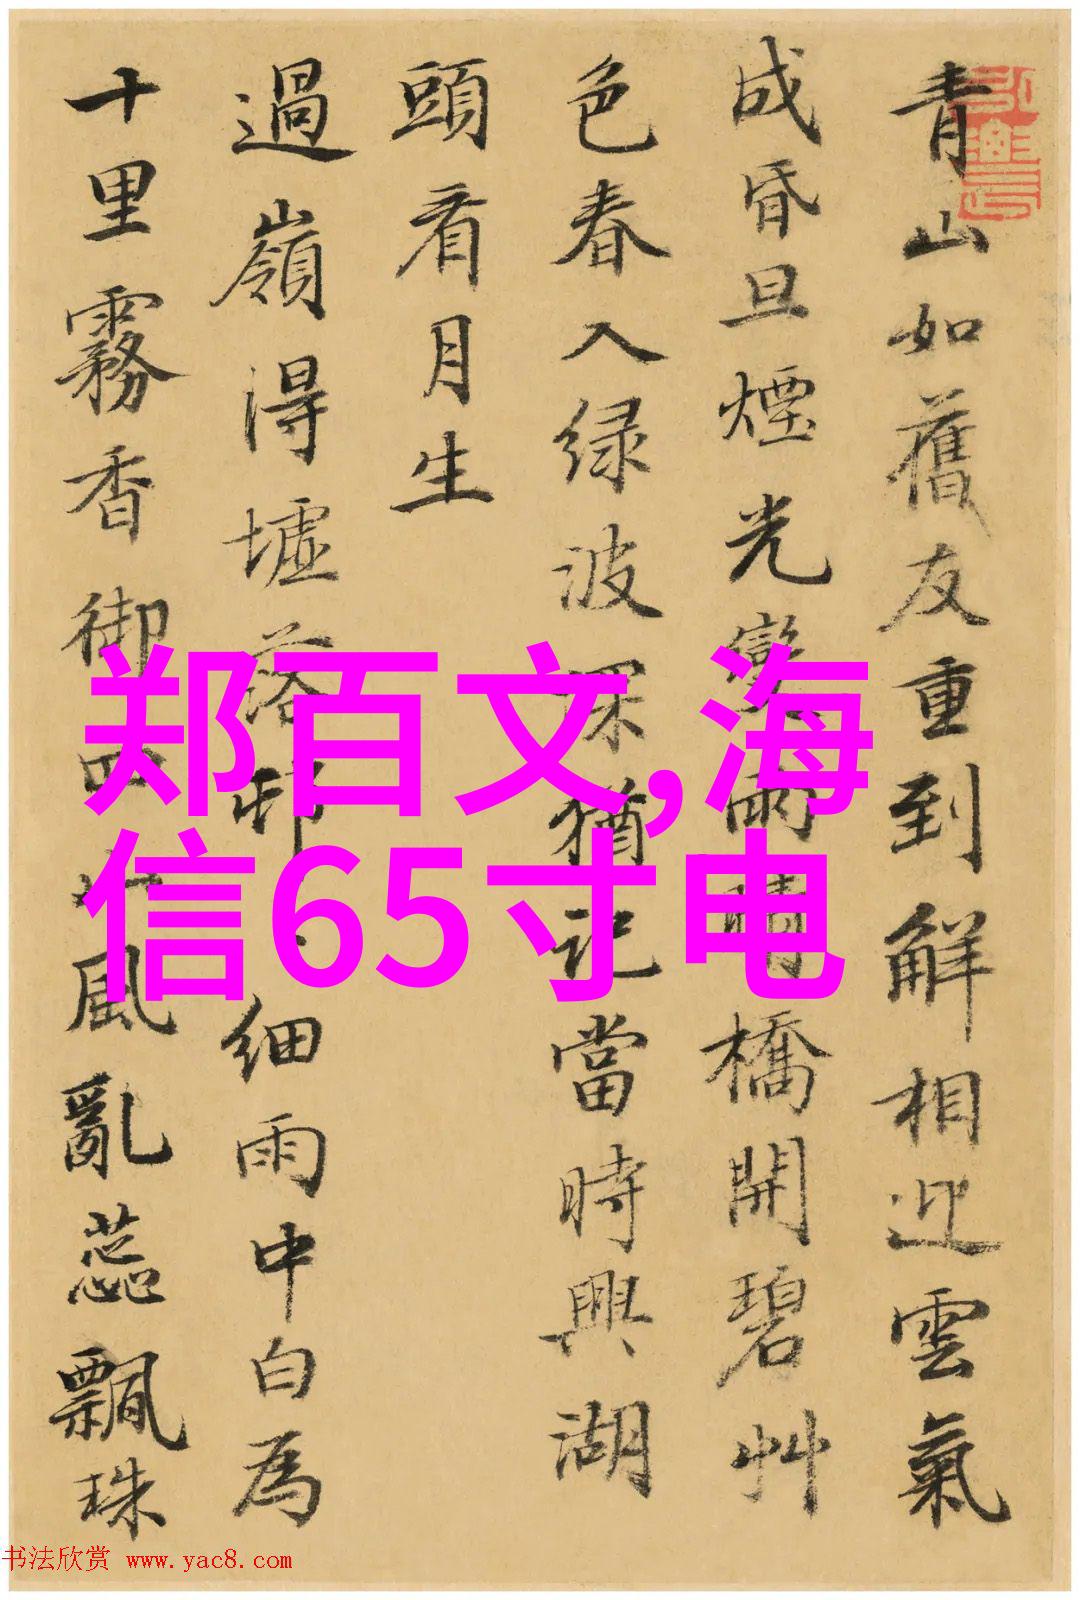 青山如舊友重到解相迎雲氣
成昏旦煙光變雨晴橋開碧艸
色春入绿波深猶記當時興湖
頭看月生
過嶺得墟落邨細雨中白為
十里霧香御四山風亂蕊飄珠
郑百文,海
信65寸电
书法欣赏 www.yac8.com